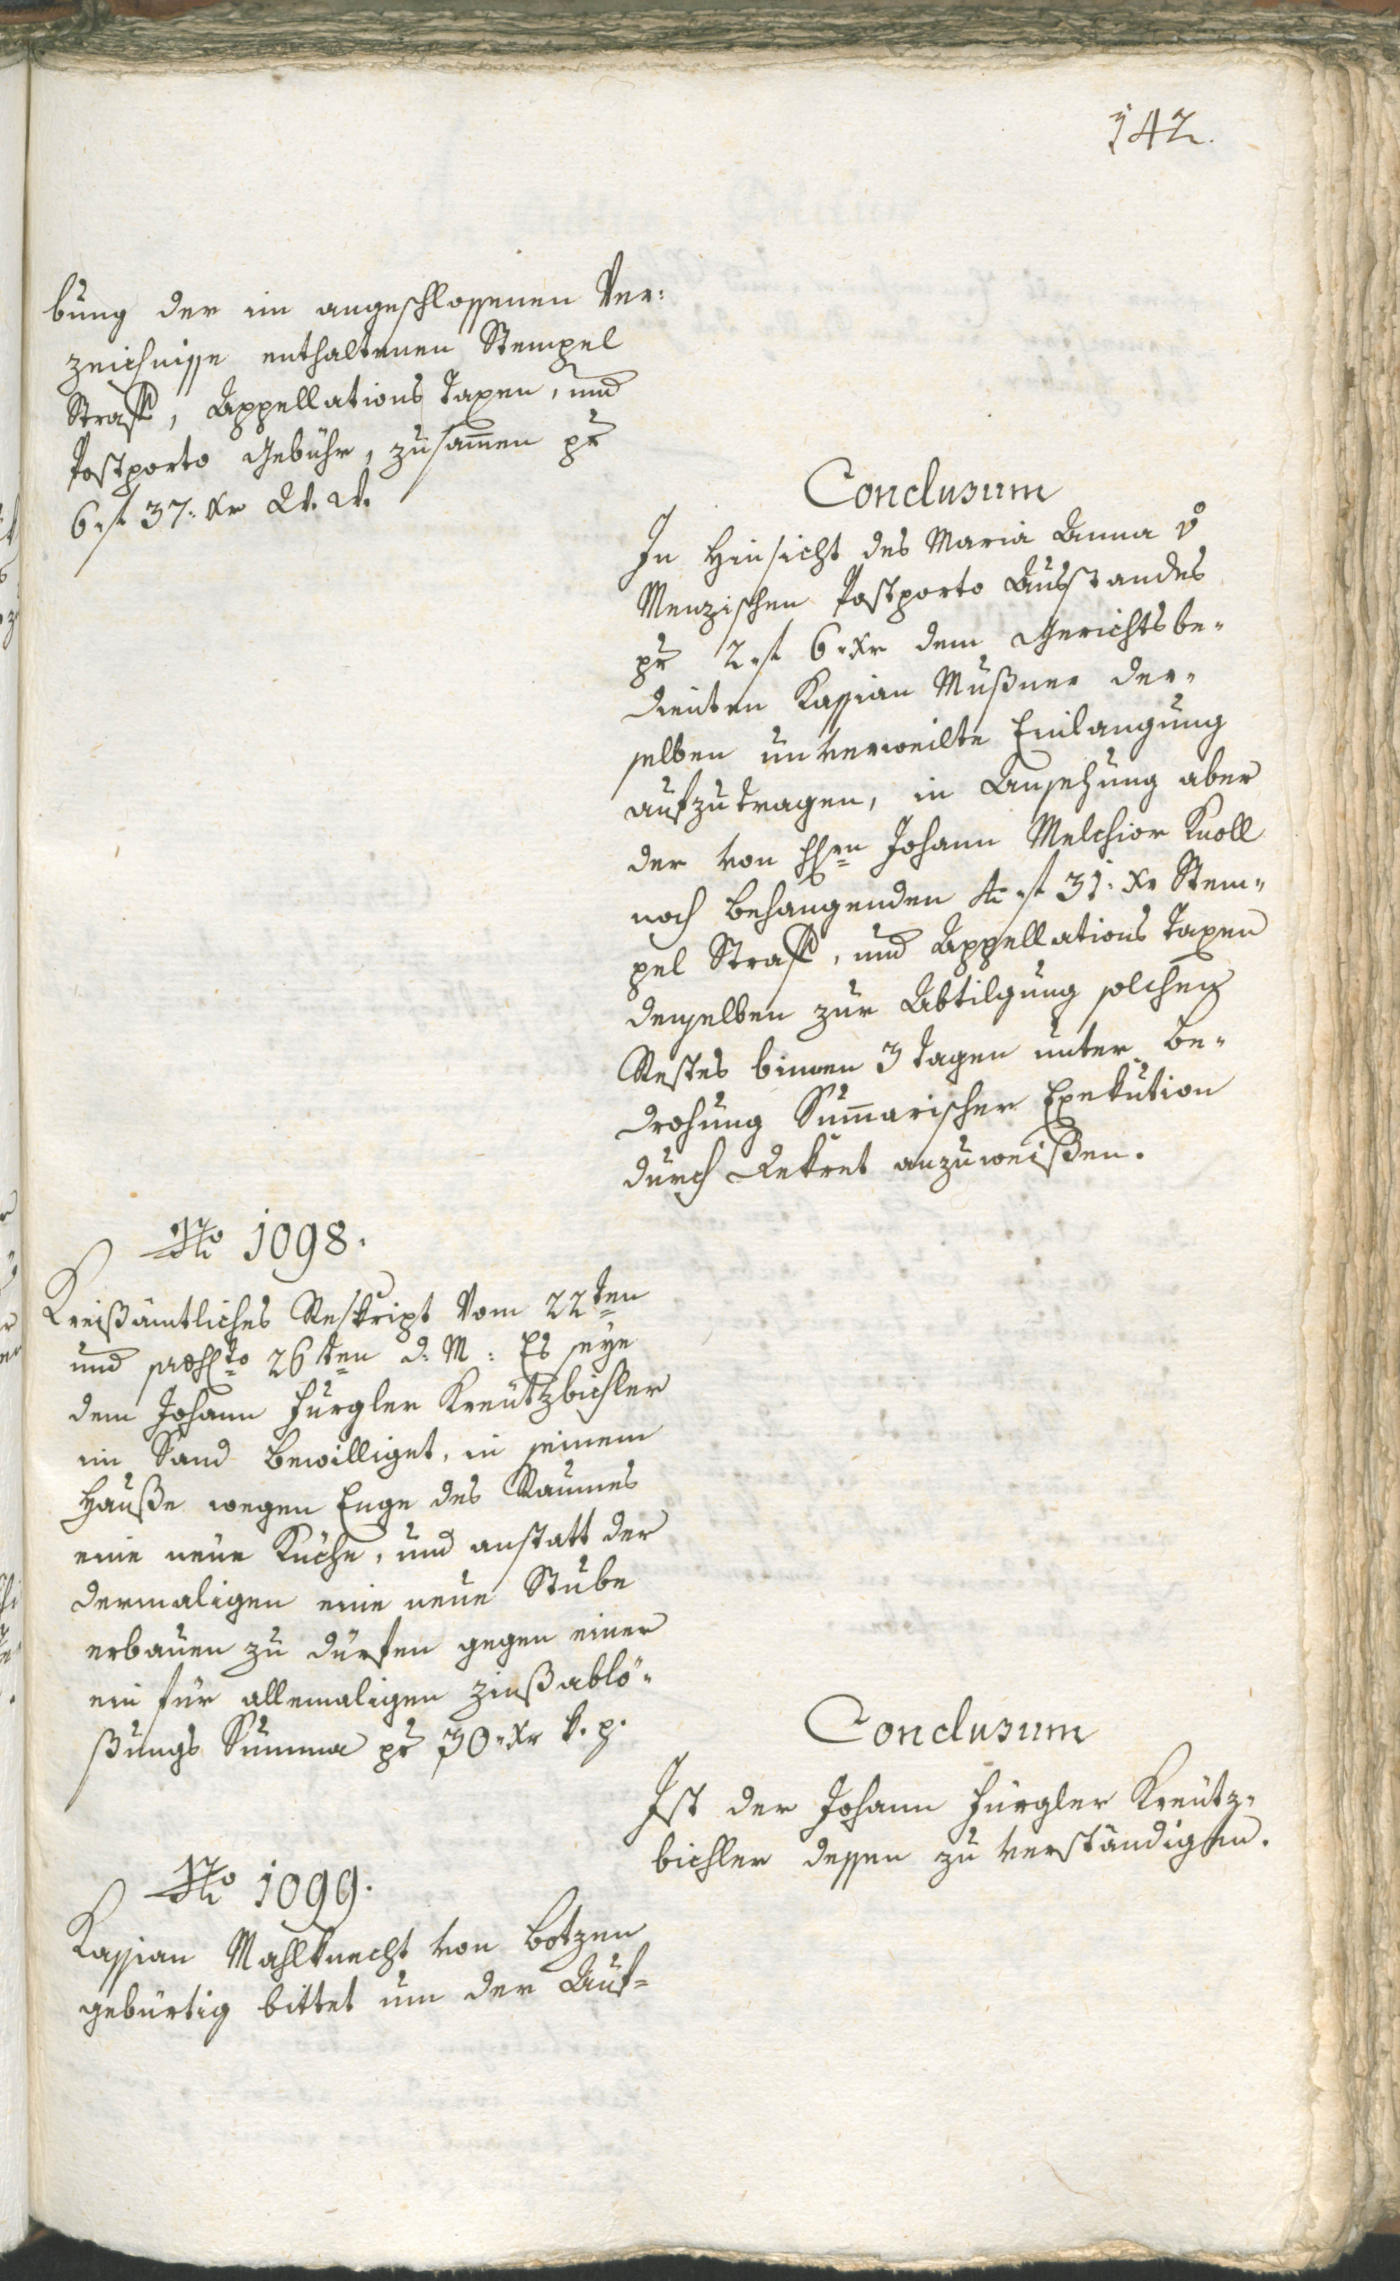 142.
bung der im angeschlossenen Ver-
zeichnisse enthaltenen Stempel
Straff, Appellations Taxen, und
Postporto Gebühr, zusam̄en pr
6 f 37. xr
Conclusum
In Hinsicht des Maria Anna v
Menzischen Postporto Ausstandes
pr 2 f 6 xr dem Gerichtsbe-
dienten Kassian Mußner der-
selben unverweilte Einlangung
aufzutragen, in Ansehung aber
der von Hrn Johann Melchior Knoll
noch behangenden 4 f 31. xr Stem-
pel Straff, und Appellations Taxen
denselben zur Abtilgung solchen
Restes binnen 3 Tagen unter Be-
drohung Sum̄arischer Exekution
durch Dekret anzuweißen.
No 1098.
Kreißämtliches Reskript vom 22ten
und 26ten d. M: Es seye
dem Johann Furgler Kreützbichler
im Sand bewilliget, in seinem
Hauße wegen Enge des Raumes
eine neue Küche, und anstatt der
dermaligen eine neue Stube
erbauen zu dürfen gegen einer
ein für allemaligen Zinßablö-
ßungs Summa pr 30 xr
Conclusum
Ist der Johann Furgler Kreütz-
bichler dessen zu verständigen.
No 1099.
Kassian Mahlknecht von Botzen
gebürtig bittet um der Auf-